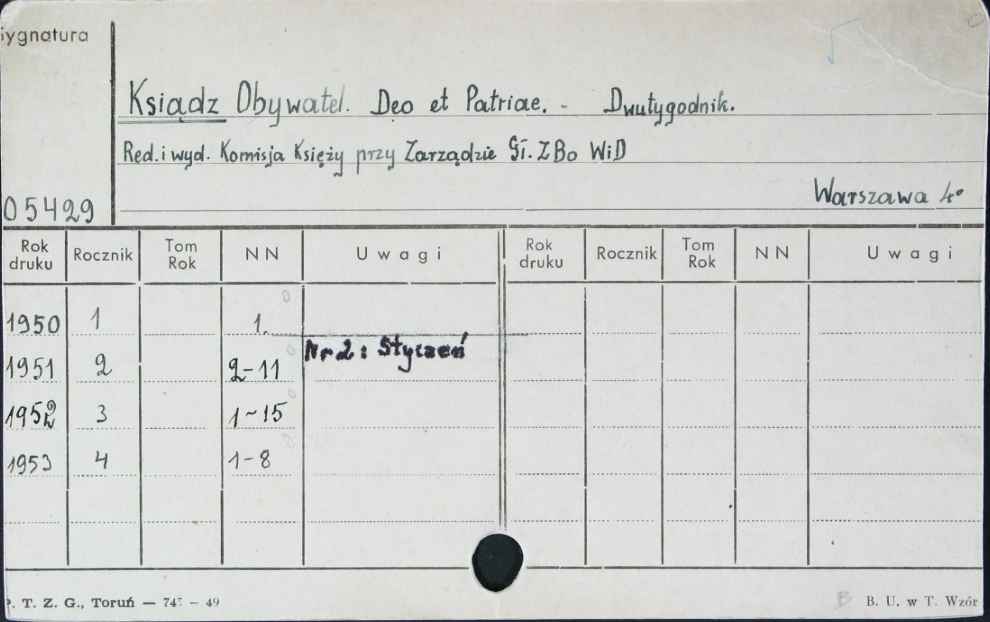 Sygnatura
Ksiądz Obywatel. Deo et Patriae. - Dwutygodnik.
Red. i wyd. Komisja Księży przy Zarządzie Gł. ZBo WiD
Warszawa 4°
05429
Rok druku Rocznik Tom Rok NN Uwagi Rok druku Rocznik Tom Rok NN Uwagi
1950 1 1.
Nr 2: Styczeń
1951 2 2-11
1952 3 1-15
1953 4 1-8
P. T. Z. G., Toruń — 747 — 49
B. U. w T. Wzór